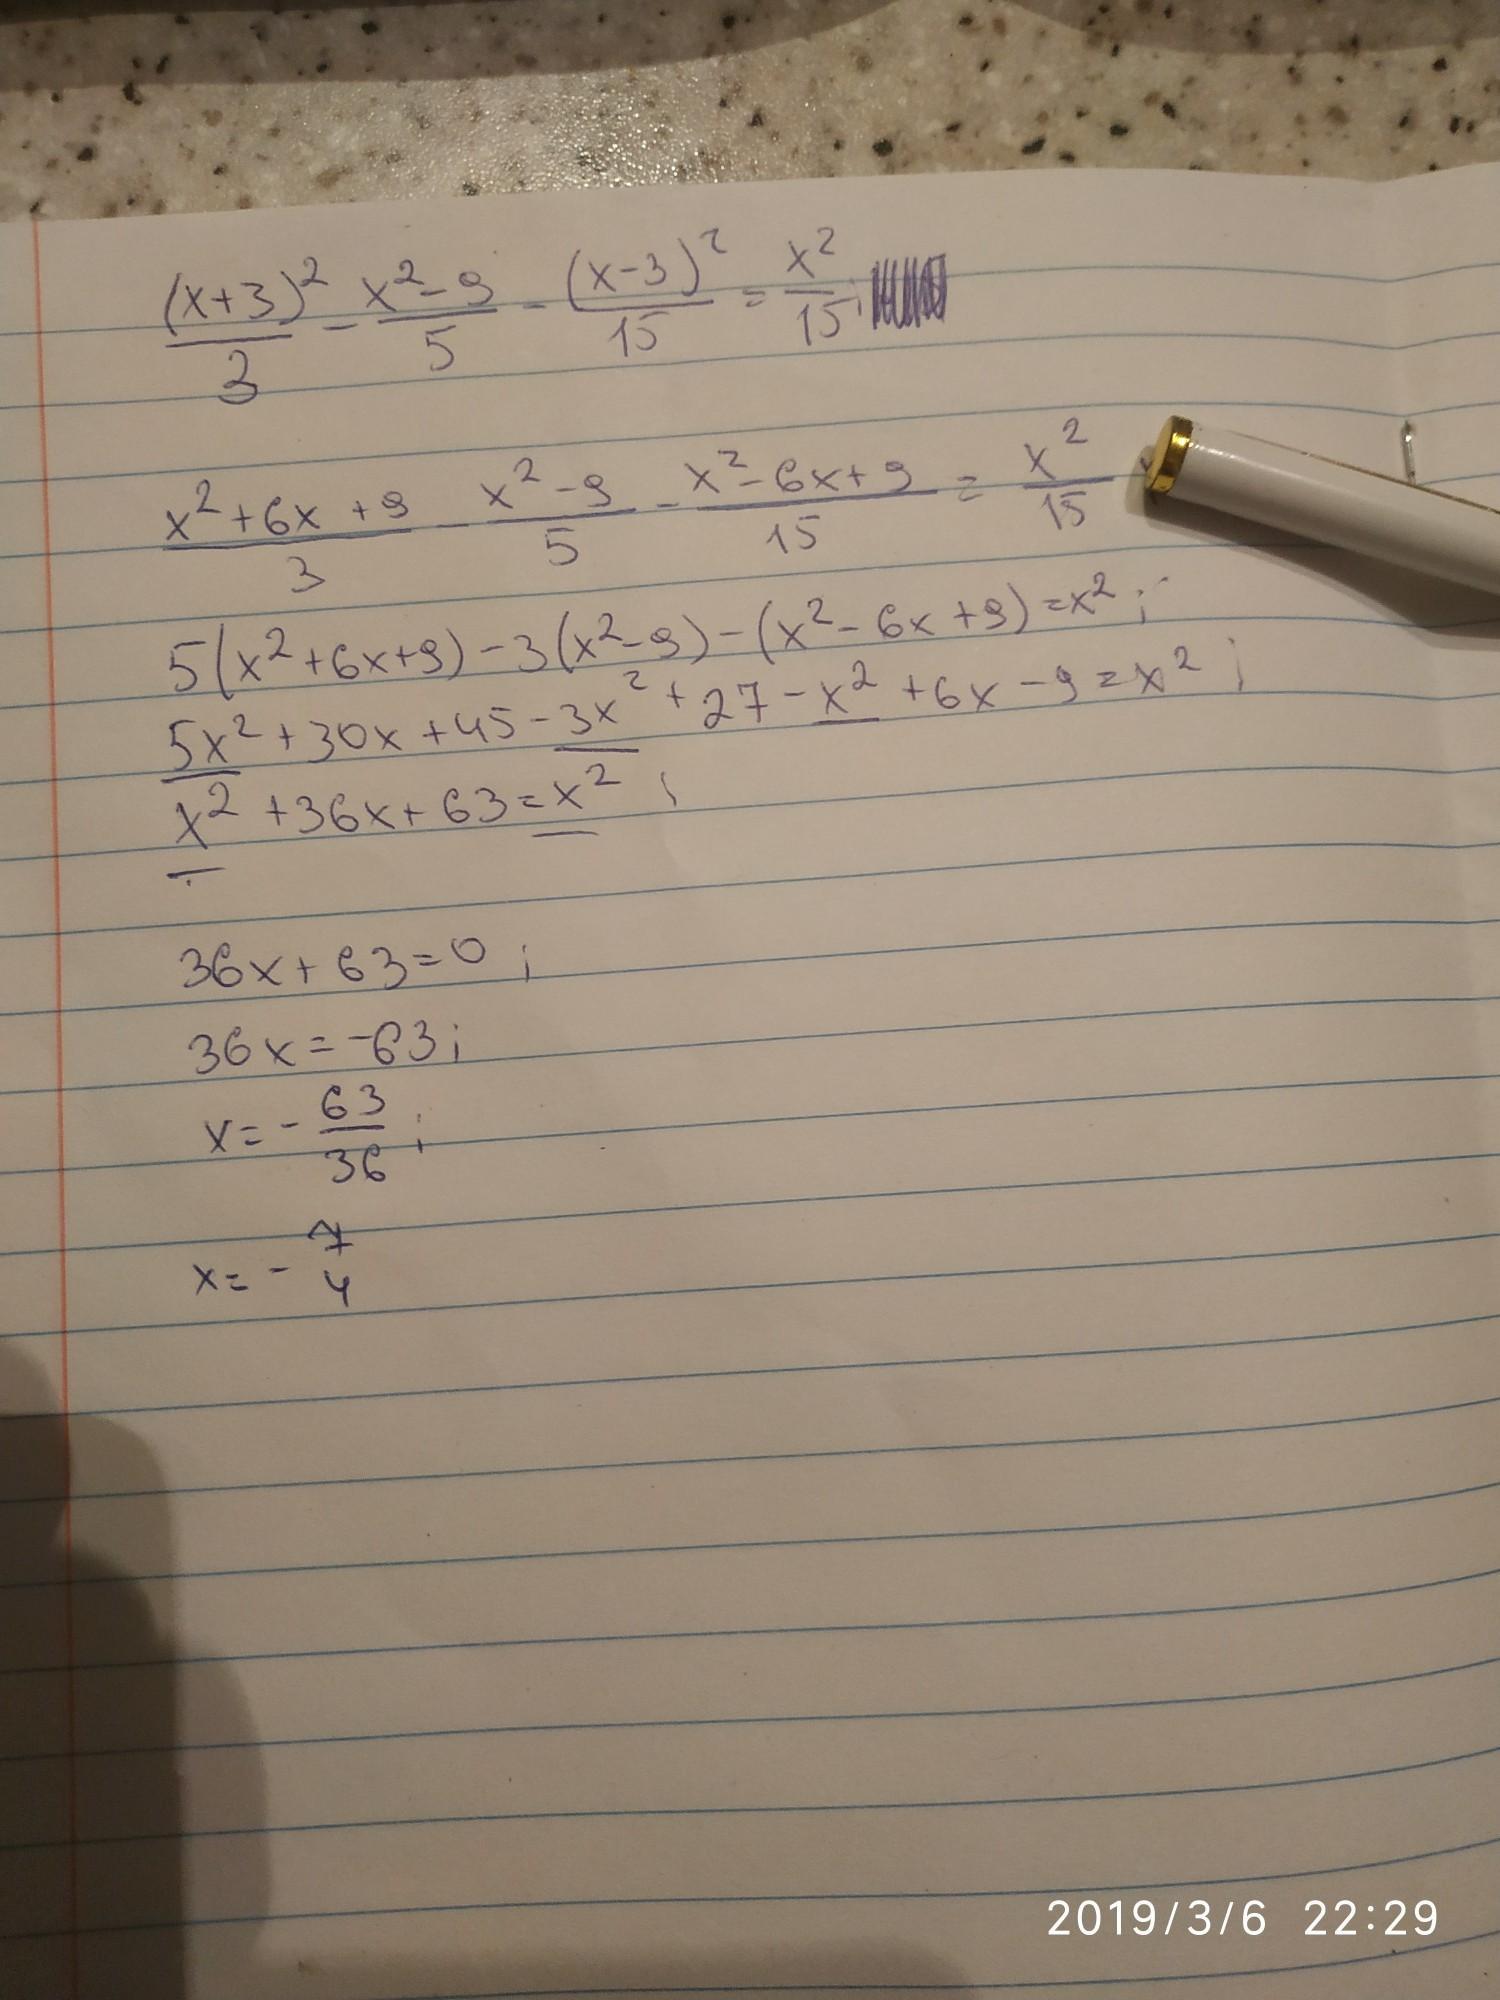 (x+3)²/3 - x²-9/5 - (x-3)²/15 = x²/15;
x²+6x+9/3 - x²-9/5 - x²-6x+9/15 = x²/15
5(x²+6x+9)-3(x²-9)-(x²-6x+9)=x²;
5x²+30x+45-3x²+27-x²+6x-9=x²;
x²+36x+63=x²;
36x+63=0;
36x=-63;
x=-63/36;
x=-7/4
2019/3/6 22:29